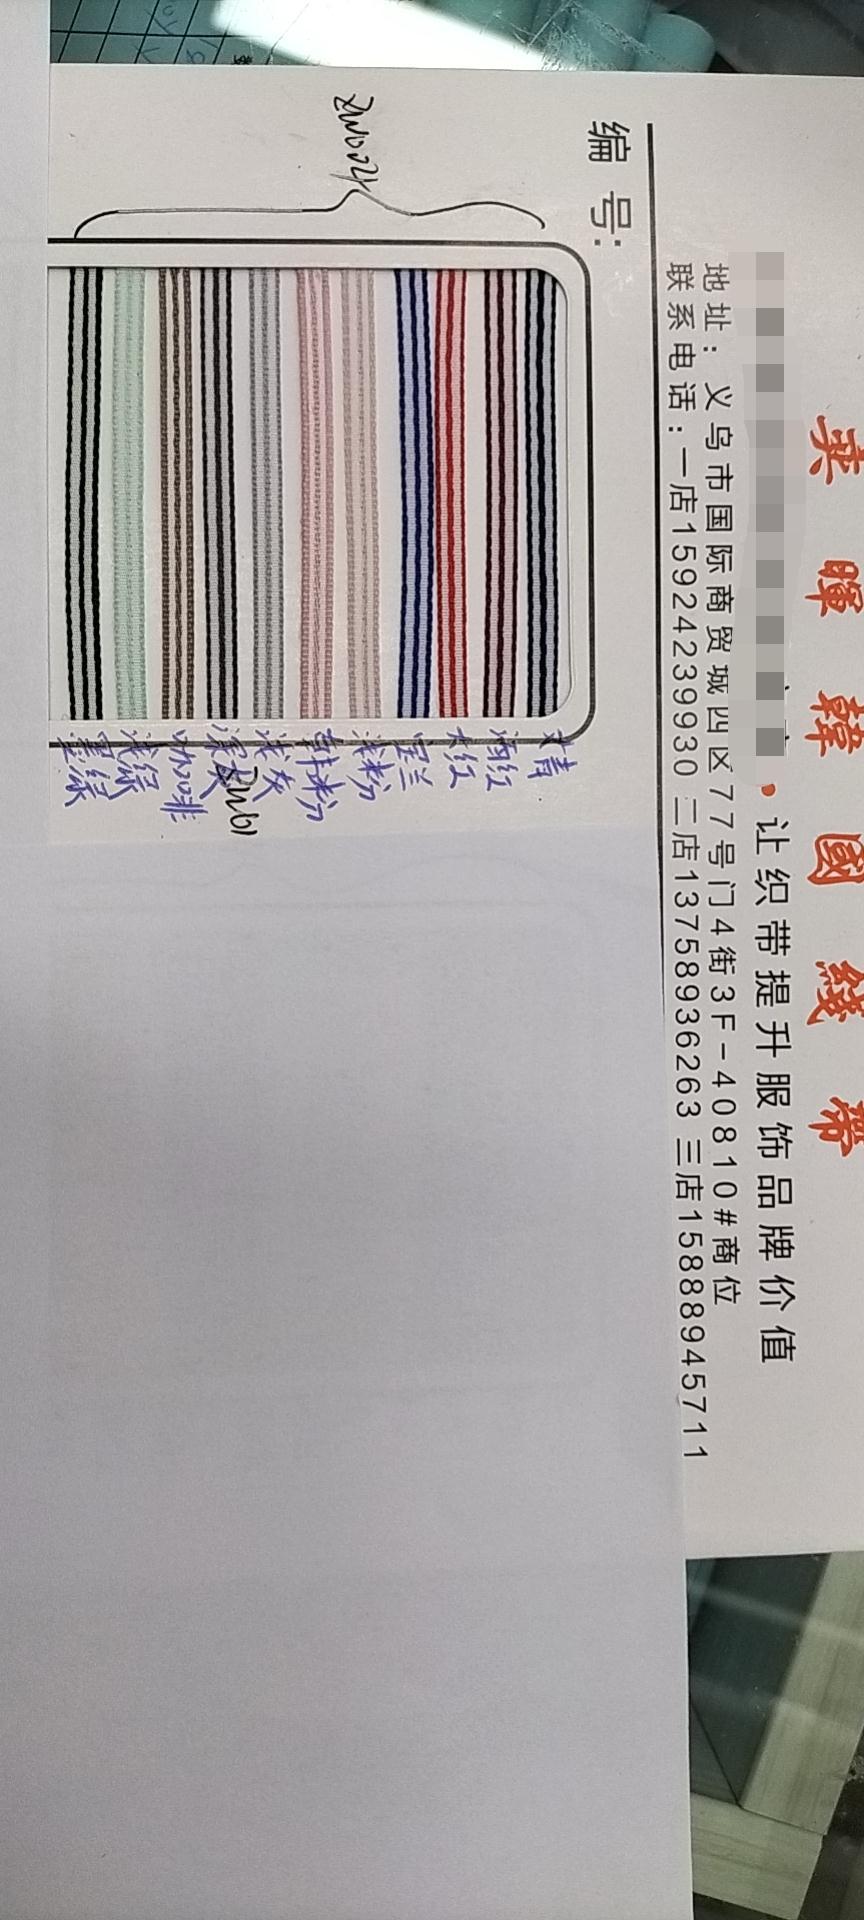 暉韓國线帶
让织带提升服饰品牌价值
地址：义乌市国际商贸城四区77号门4街3F-40810#商位
联系电话：一店15924239930 二店13758936263 三店15888945711
编号:
酒红
大红
宝兰
浅粉
韩粉
浅灰
咖啡
浅绿
墨绿